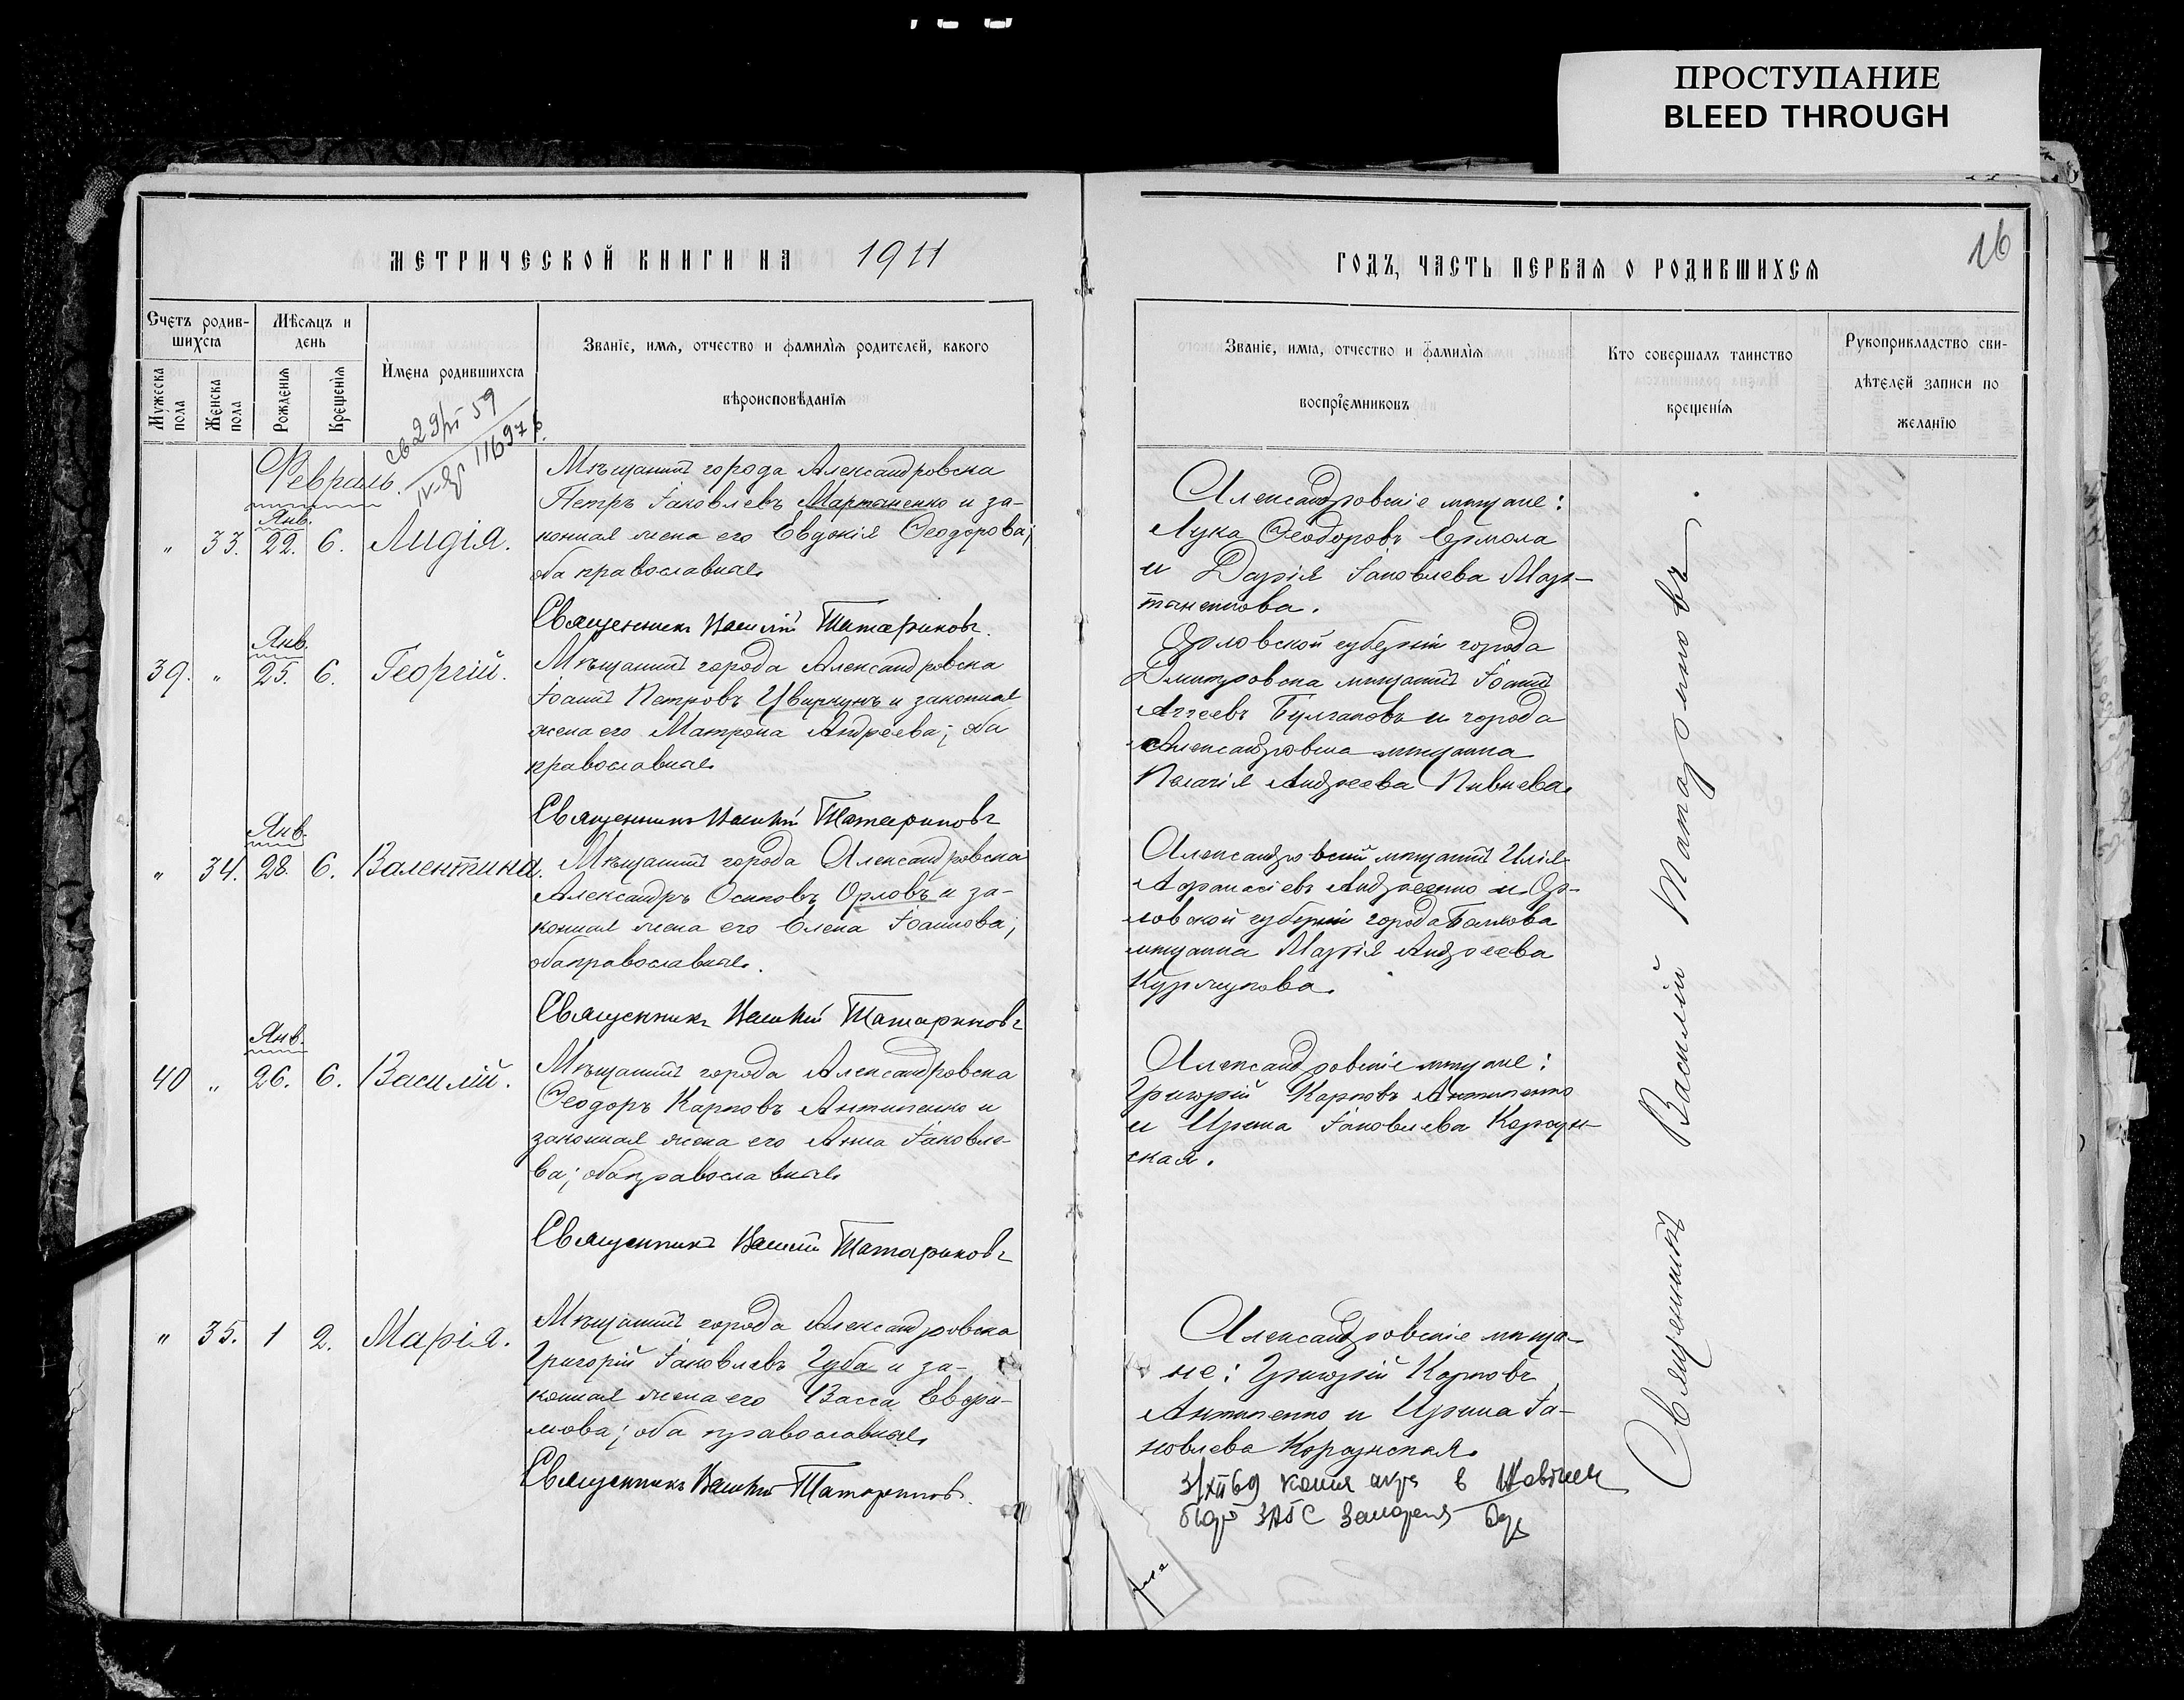 ПРОСТУПАНИЕ
BLEED THROUGH
МЕТРИЧЕСКОЙ КНИГИ НА 1911
Счетъ родив-
шихся
Мужеска пола
Женска пола
Мѣсяцъ и
день
Рожденія
Крещенія
Имена родившихся
Званіе, имя, отчество и фамилія родителей, какого
вѣроисповѣданія
Февраль.
Янв.
" 33. 22. 6. Лидія.
Мѣщанинъ города Александровска
Петръ Іаковлевъ Мартыненко и за-
конная жена его Евдокія Ѳеодорова;
оба православные.
Священникъ Василій Татариновъ.
Янв.
39. " 25. 6. Георгій.
Мѣщанинъ города Александровска
Іоаннъ Петровъ Цвиркунъ и законная
жена его Матрона Андреева; оба
православные.
Священникъ Василій Татариновъ
Янв.
" 34. 28. 6. Валентина.
Мѣщанинъ города Александровска
Александръ Осиповъ Орловъ и за-
конная жена его Елена Іоаннова;
оба православные.
Священникъ Василій Татариновъ
Янв.
40 " 26. 6. Василій.
Мѣщанинъ города Александровска
Ѳеодоръ Карповъ Антипенко и
законная жена его Анна Іаковле-
ва; оба православные.
Священникъ Василій Татариновъ
" 35. 1 2. Марія.
Мѣщанинъ города Александровска
Григорій Іаковлевъ Губа и за-
конная жена его Васса Евфи-
мова; оба православные.
Священникъ Василій Татариновъ.
ГОДЪ, ЧАСТЬ ПЕРВАЯ О РОДИВШИХСЯ
16
Званіе, имя, отчество и фамилія
воспріемниковъ
Кто совершалъ таинство
крещенія
Рукоприкладство сви-
дѣтелей записи по
желанію
Александровскіе мѣщане:
Лука Ѳеодоровъ Ермола
и Дарія Іаковлева Мар-
тыненкова.
Орловской губерніи города
Дмитровска мѣщанинъ Іоаннъ
Аггеевъ Булгаковъ и города
Александровска мѣщанка
Пелагія Андреева Пивнева.
Александровскій мѣщанинъ Илія
Афанасіевъ Андреенко и Ор-
ловской губерніи города Болхова
мѣщанка Марія Андреева
Александровскіе мѣщане:
Григорій Карповъ Антипенко
и Ирина Іаковлева Корсун-
ская.
Александровскіе мѣща-
не: Григорій Карповъ
Антипенко и Ирина Іа-
ковлева Корсунская.
3/XII 69 копия в
ЗАГС
Священникъ Василій Татариновъ.